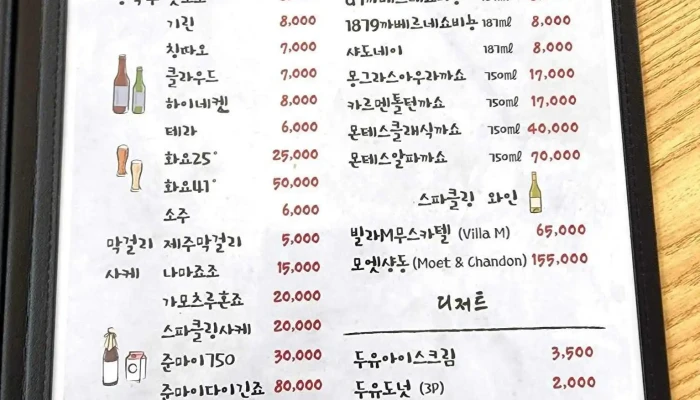 기린 8,000
칭따오 7,000
클라우드 7,000
하이네켄 8,000
테라 6,000
화요25° 25,000
화요41° 50,000
소주 6,000
막걸리 제주막걸리 5,000
사케 나마죠조 15,000
가모츠루혼죠 20,000
스파클링사케 20,000
준마이750 30,000
준마이다이긴죠 80,000
1879까베르네쇼비뇽 187ml 8,000
샤도네이 187ml 8,000
몽그라스아우라까쇼 750ml 17,000
카르멘톨텐까쇼 750ml 17,000
몬테스클래식까쇼 750ml 40,000
몬테스알파까쇼 750ml 70,000
스파클링 와인
빌라M무스카텔 (Villa M) 65,000
모엣샹동 (Moet & Chandon) 155,000
디저트
두유아이스크림 3,500
두유도넛 (3P) 2,000